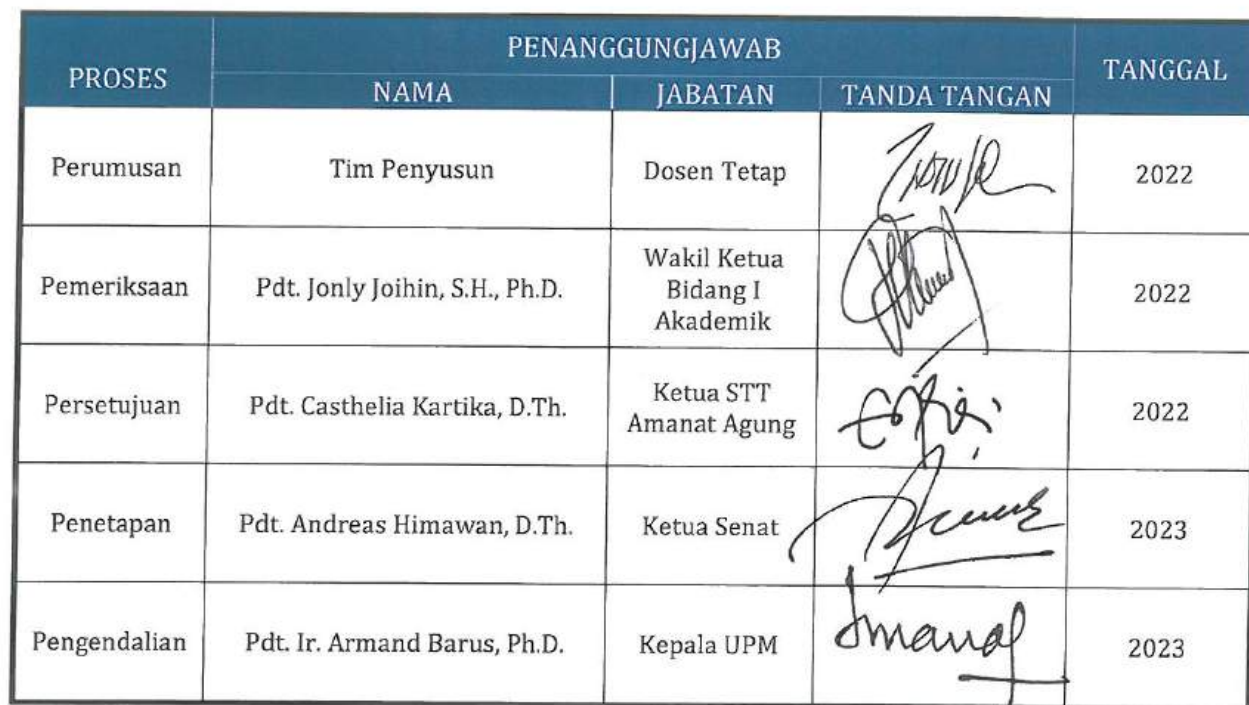 PROSES
PENANGGUNGJAWAB
TANGGAL
NAMA
JABATAN
TANDA TANGAN
Perumusan
Tim Penyusun
Dosen Tetap
2022
Pemeriksaan
Pdt. Jonly Joihin, S.H., Ph.D.
Wakil Ketua
Bidang I
Akademik
2022
Persetujuan
Pdt. Casthelia Kartika, D.Th.
Ketua STT
Amanat Agung
2022
Penetapan
Pdt. Andreas Himawan, D.Th.
Ketua Senat
2023
Pengendalian
Pdt. Ir. Armand Barus, Ph.D.
Kepala UPM
2023